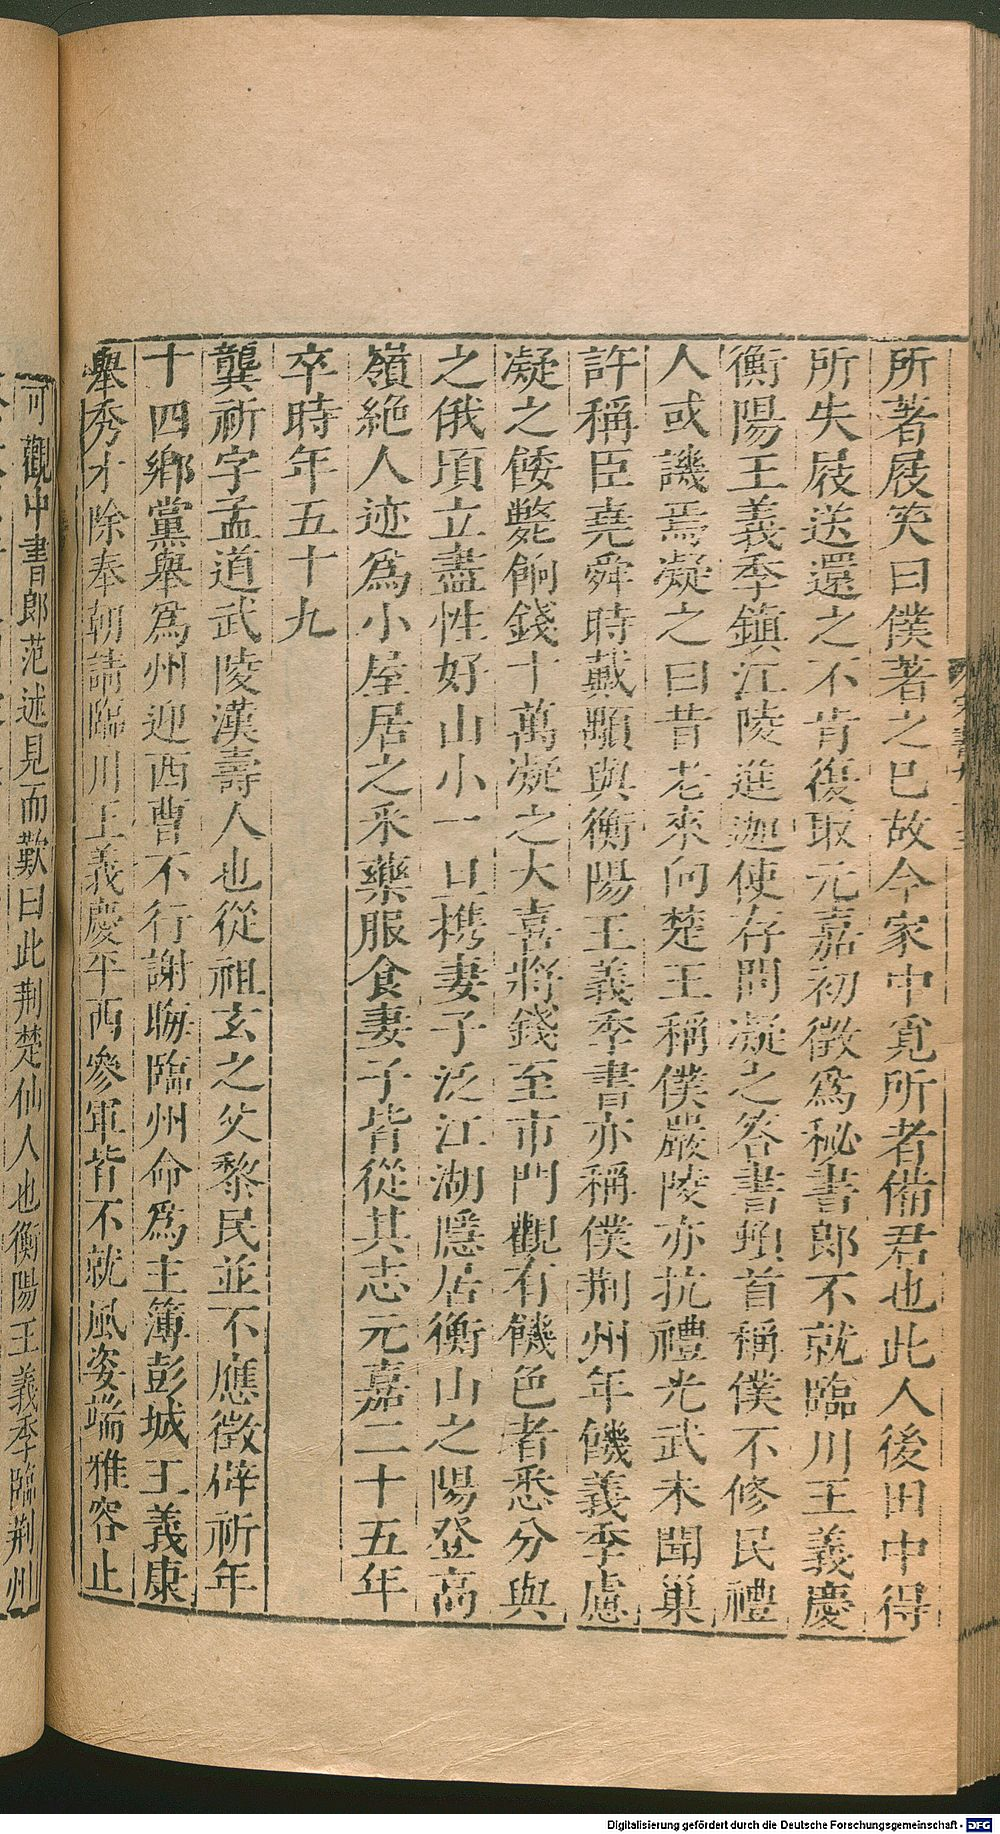 所著屐笑曰僕著之已故今家中覓所者備君也此人後田中得
所失屐送還之不肯復取元嘉初徵為秘書郎不就臨川王義慶
衡陽王義季鎮江陵進迦使存問凝之答書頓首稱僕不修民禮
人或譏焉凝之曰昔老萊向楚王稱僕嚴陵亦抗禮光武未聞巢
許稱臣堯舜時戴顒與衡陽王義季書亦稱僕荆州年饑義季慮
凝之餧斃餉錢十萬凝之大喜將錢至市門觀有饑色者悉分與
之俄頃立盡性好山小一旦携妻子泛江湖隱居衡山之陽登高
嶺絶人迹爲小屋居之采藥服食妻子皆從其志元嘉二十五年
卒時年五十九
龔祈字孟道武陵漢壽人也從祖玄之父黎民並不應徵辟祈年
十四鄉黨舉爲州迎西曹不行謝晦臨州命爲主簿彭城王義康
舉秀才除奉朝請臨川王義慶平西參軍皆不就風姿端雅容止
可觀中書郎范述見而歎曰此荆楚仙人也衡陽王義季臨荆州
Digitalisierung gefördert durch die Deutsche Forschungsgemeinschaft - DFG